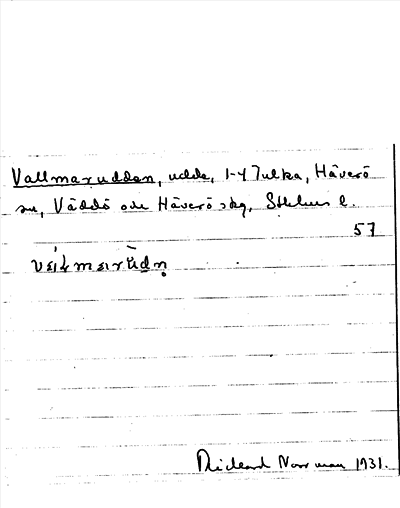 Vallmarudden, udde, 1-4 Tulka, Häverö
sn, Väddö och Häverö skg, Sthlms l.
57
Rickard Norrman 1931.